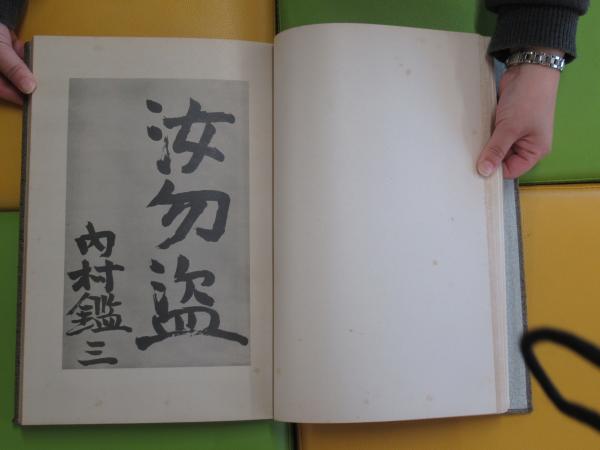 汝勿盗
内村鑑三